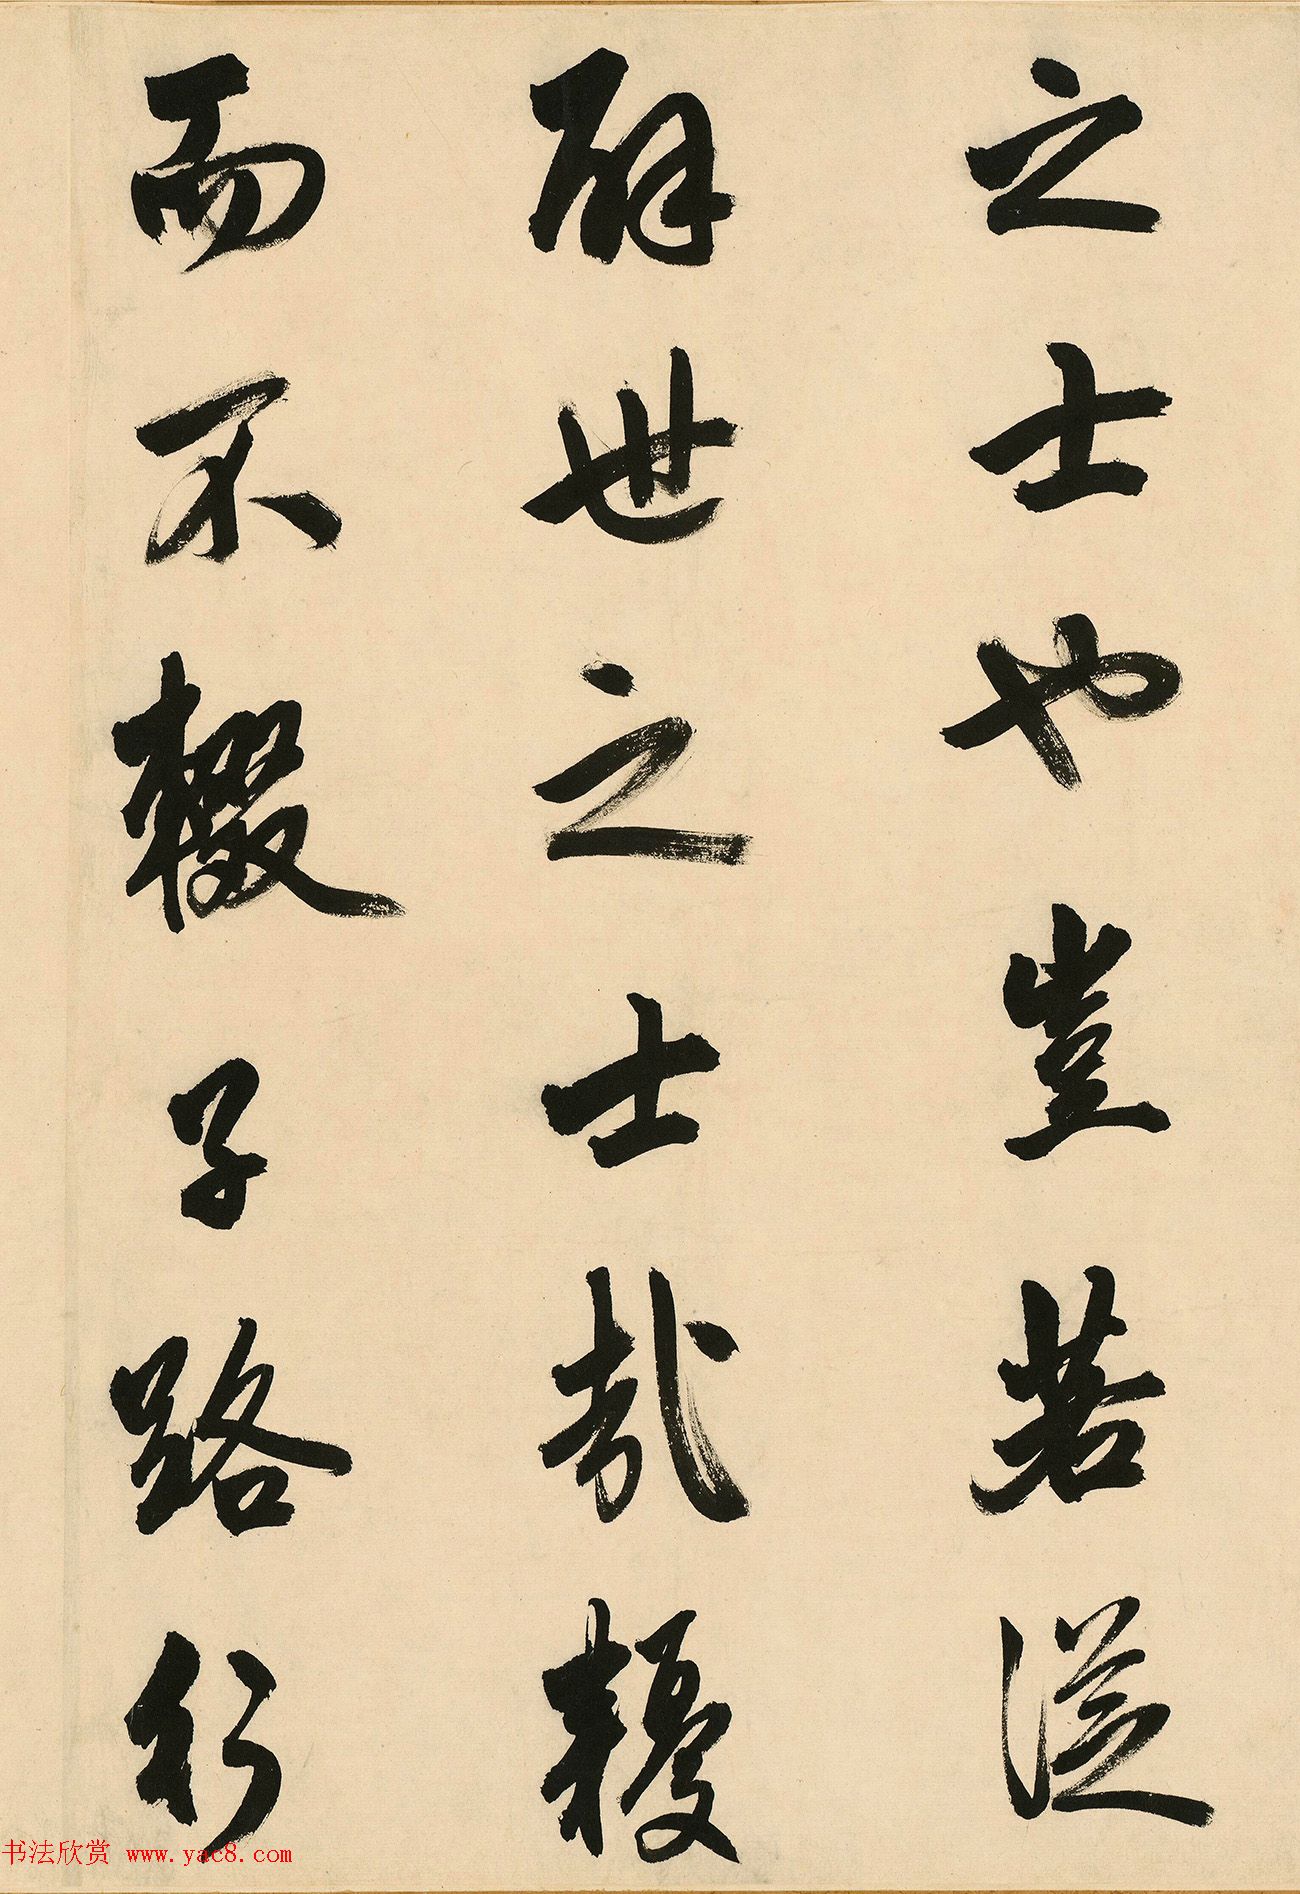 之士也豈若從
辟世之士哉耰
而不輟子路行
书法欣赏 www.yac8.com